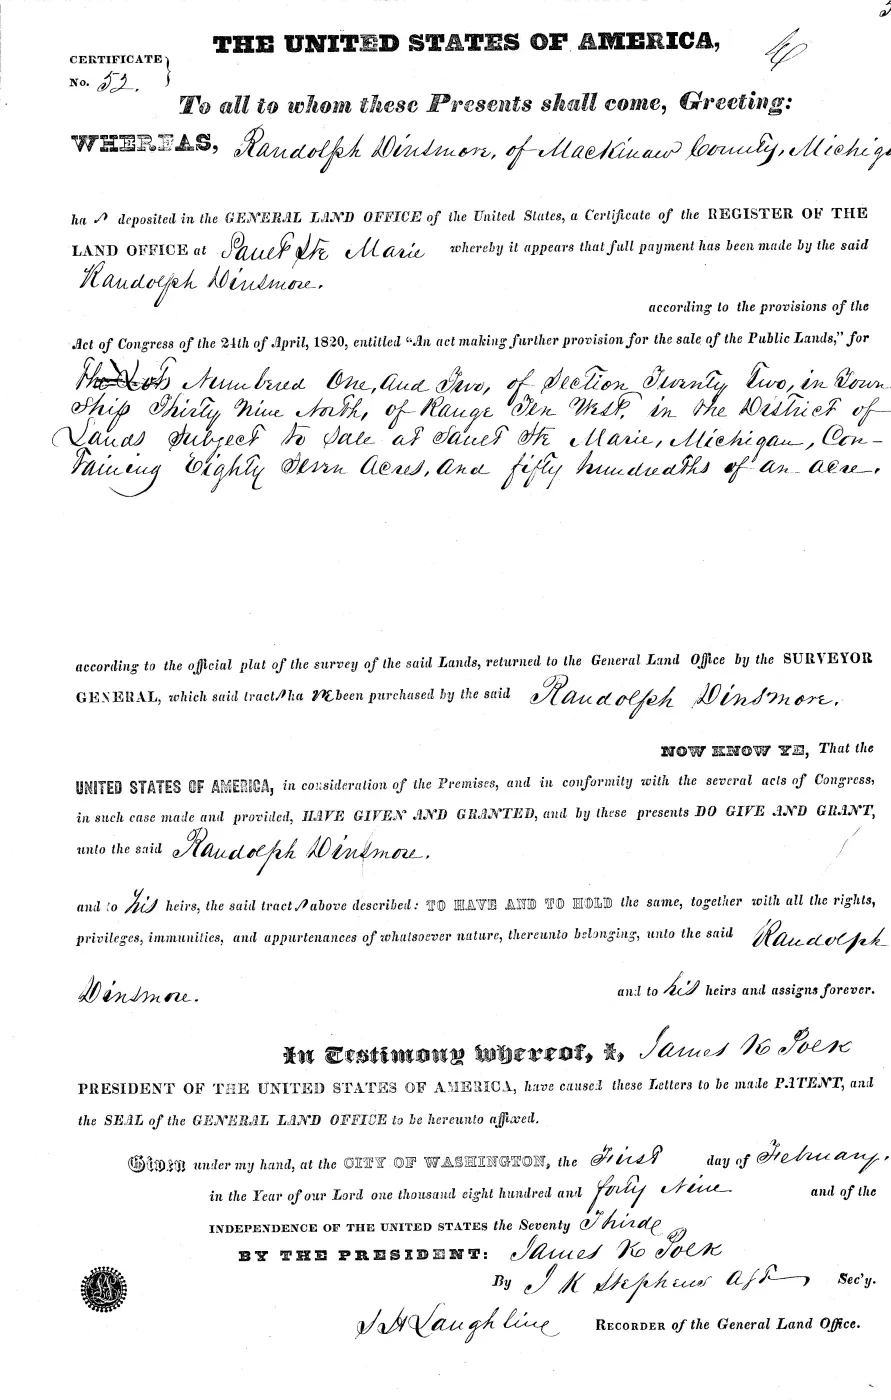 THE UNITED STATES OF AMERICA,
CERTIFICATE
No. 52.
To all to whom these Presents shall come, Greeting:
WHEREAS, Randolph Dinsmore, of Mackinaw County, Michiga
ha s deposited in the GENERAL LAND OFFICE of the United States, a Certificate of the REGISTER OF THE
LAND OFFICE at Sault Ste Marie whereby it appears that full payment has been made by the said
Randolph Dinsmore.
according to the provisions of the
Act of Congress of the 24th of April, 1820, entitled "An act making further provision for the sale of the Public Lands," for
The Lots Numbered One, and Two, of Section Twenty Two, in Town
ship Thirty Nine North, of Range Ten West, in the District of
Lands Subject to Sale at Sault Ste Marie, Michigan, Con-
taining Eighty Seven Acres, and fifty hundredths of an acre.
according to the official plat of the survey of the said Lands, returned to the General Land Office by the SURVEYOR
GENERAL, which said tract s ha ve been purchased by the said Randolph Dinsmore.
NOW KNOW YE, That the
UNITED STATES OF AMERICA, in consideration of the Premises, and in conformity with the several acts of Congress,
in such case made and provided, HAVE GIVEN AND GRANTED, and by these presents DO GIVE AND GRANT,
unto the said Randolph Dinsmore.
and to his heirs, the said tract s above described: TO HAVE AND TO HOLD the same, together with all the rights,
privileges, immunities, and appurtenances of whatsoever nature, thereunto belonging, unto the said Randolph
Dinsmore. and to his heirs and assigns forever.
In Testimony whereof, I, James K Polk
PRESIDENT OF THE UNITED STATES OF AMERICA, have caused these Letters to be made PATENT, and
the SEAL of the GENERAL LAND OFFICE to be hereunto affixed.
Given under my hand, at the CITY OF WASHINGTON, the First day of February.
in the Year of our Lord one thousand eight hundred and forty Nine and of the
INDEPENDENCE OF THE UNITED STATES the Seventy Third
BY THE PRESIDENT: James K Polk
By J K Stephens Sec'y.
S H Laughline RECORDER of the General Land Office.